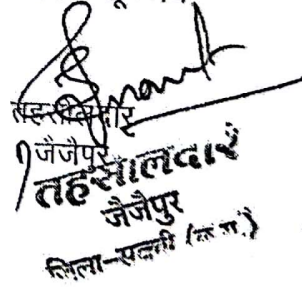 तहसीलदार
जैजैपुर
तहसीलदार
जैजैपुर
जिला-सक्ती (छ.ग.)